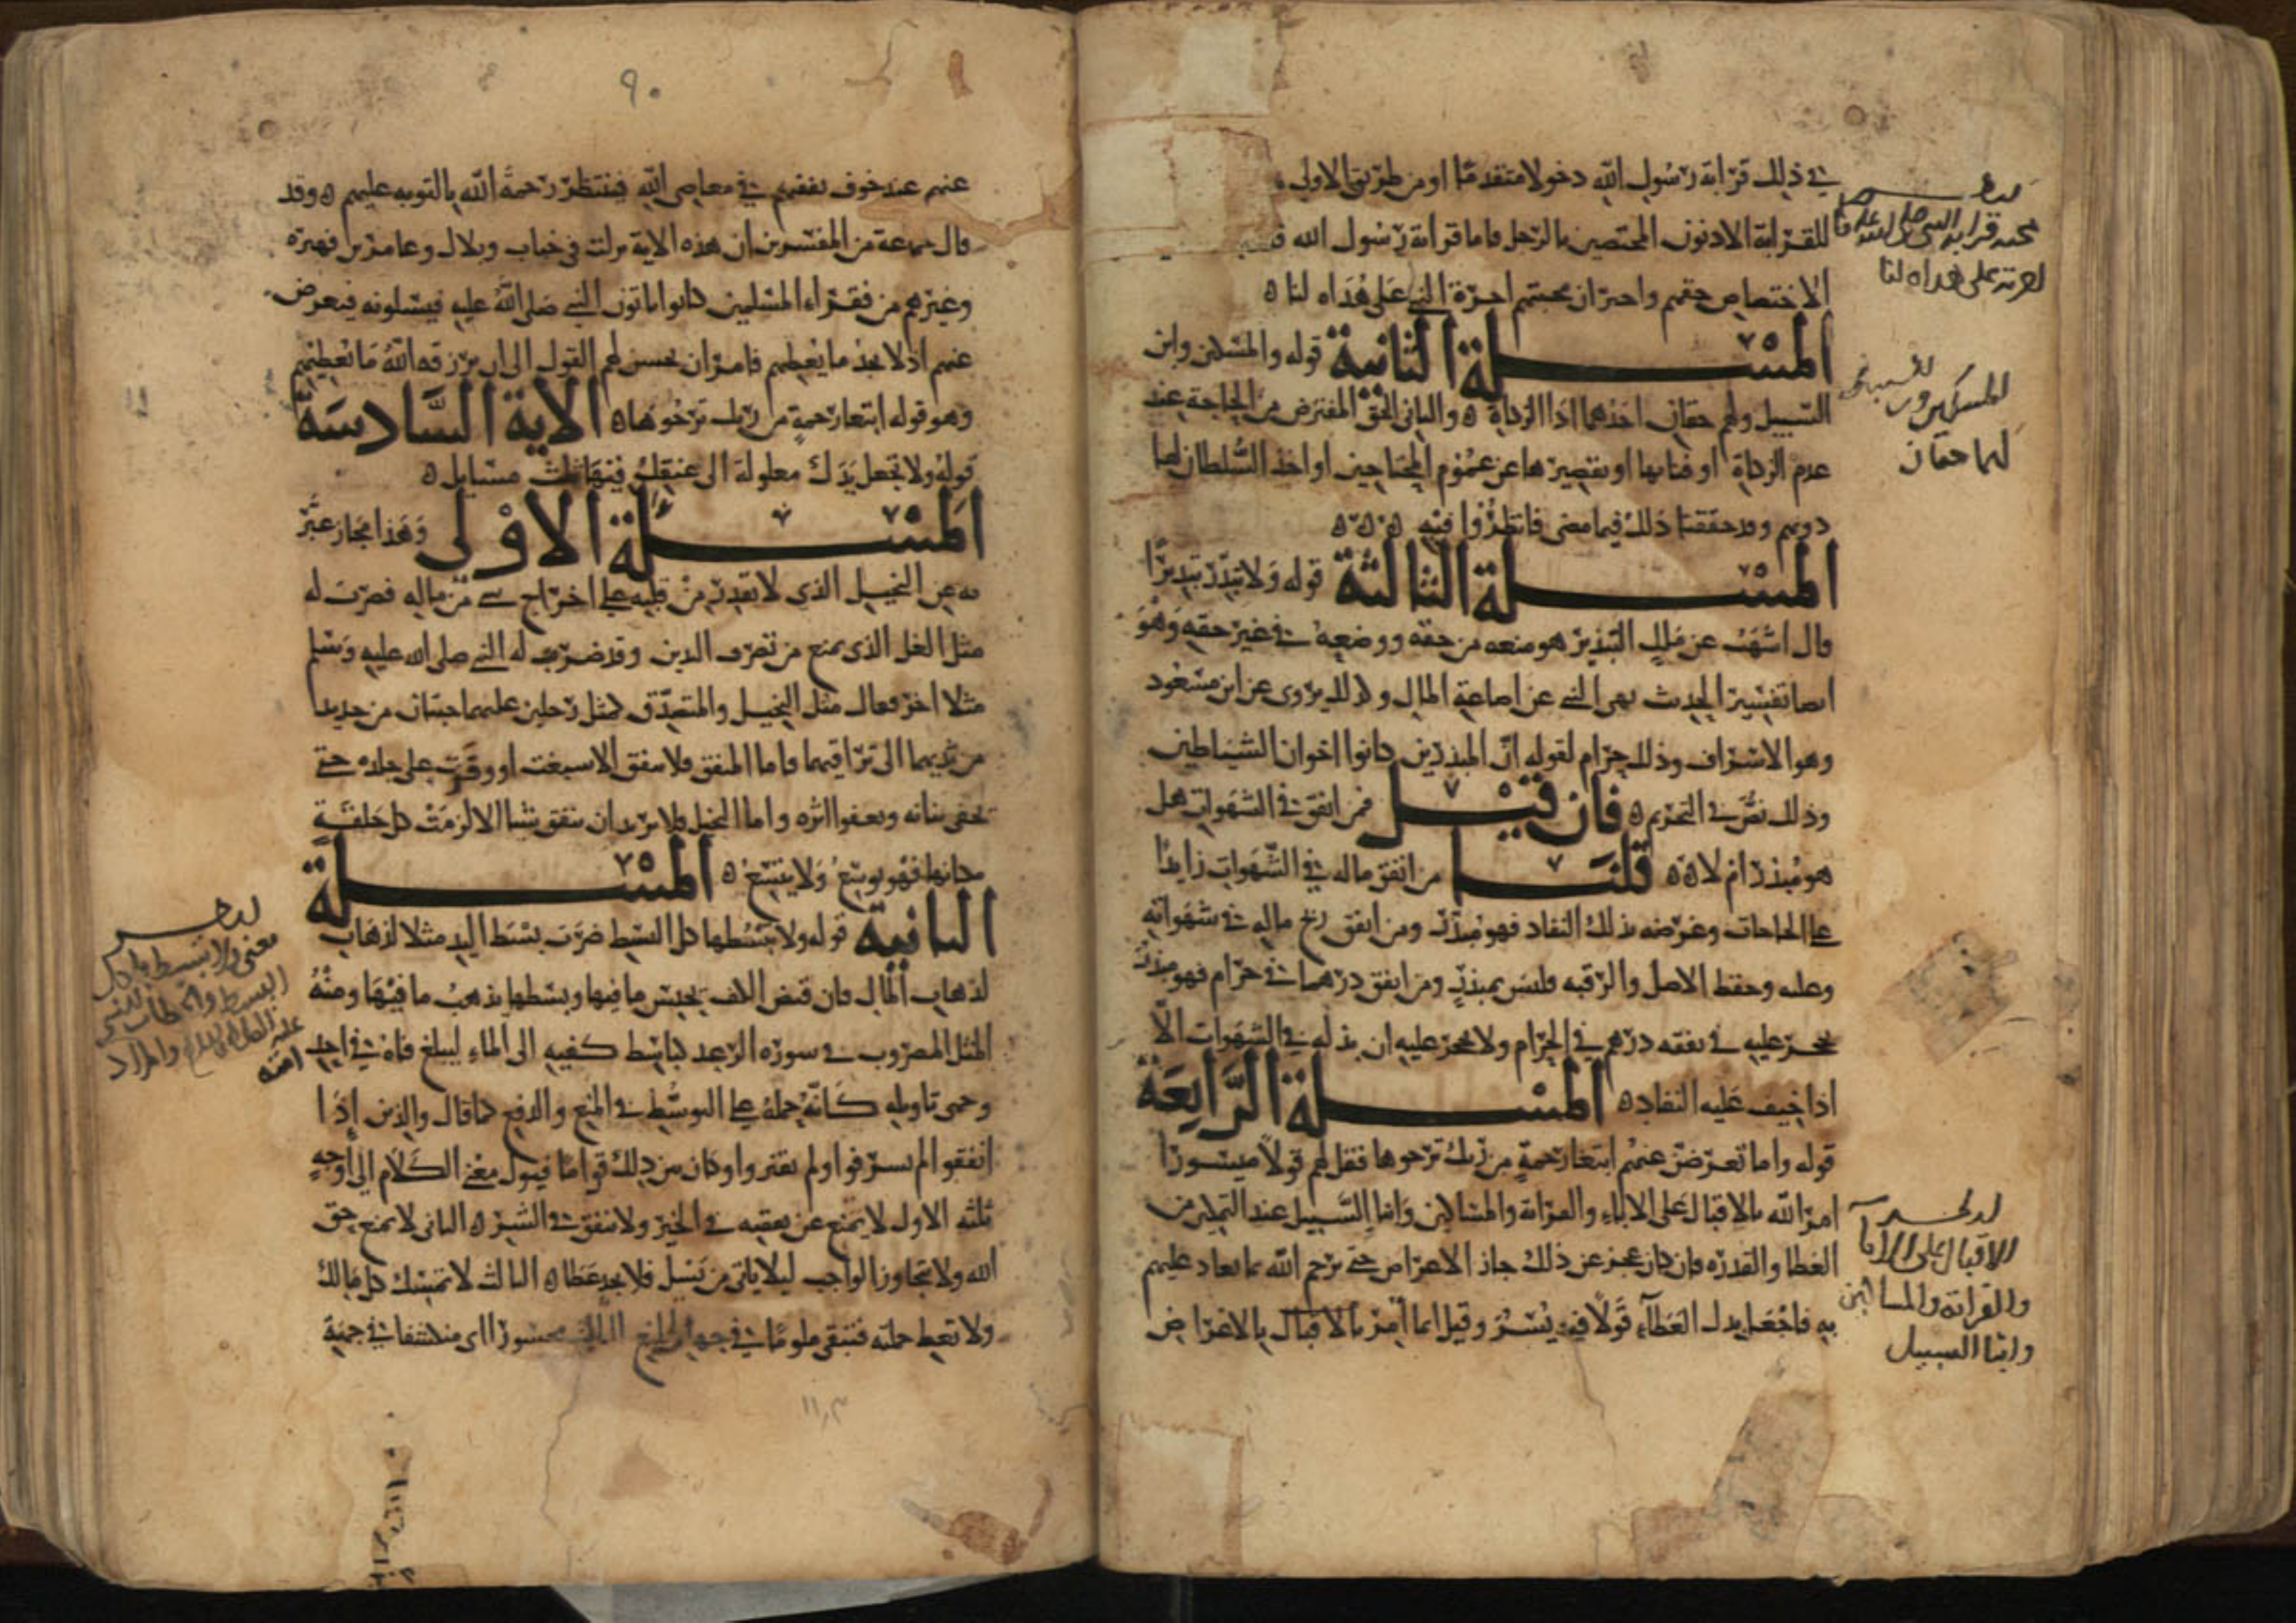 في ذلك قرابة رسول الله دخولا متقدما او من طريق الاولى
للقرابة الادنون المختصين بالرجل فاما قرابة رسول الله
الاختصاص حقهم واخبر ان محبتهم اجرة النبي على هداه لنا ه
المسلة الثانية قوله والمسكين وابن
السبيل ولهم حقان احدهما اداا الزكاة ه والثاني الحق المفترض من الحاجة عند
عدم الزكاة او فنايها او تقصيرها عن عموم المحتاجين او اخذ السلطان لها
دونهم وقد حققنا ذلك فيما مضى فانظروا فيه ه ه ه
المسلة الثالثة قوله ولا تبذر تبذيرا
قال اشهب عن ملك التبذير هو منعه من حقه ووضعه في غير حقه وهو
ايضا تفسير الحديث نهى النبي عن اضاعة المال وكذلك يروى عن ابن مسعود
وهو الاسراف وذلك حرام لقوله ان المبذرين كانوا اخوان الشياطين
وذلك نص في التحريم ه فان قيل فمن انفق في الشهوات هل
هو مبذر ام لا ه ه قلنا من انفق ماله في الشهوات زايدا
على الحاجات وعرضه بذلك النفاد فهو مبذر ومن انفق ربح ماله في شهواته
وغلته وحفظ الاصل والرقبة فليس بمبذر ومن انفق درهما في حرام فهو مبذر
يحجر عليه في نفقه درهم في الحرام ولا يحجر عليه ان بذله في الشهوات الا
اذا خيف عليه النفاد ه المسلة الرابعة
قوله واما تعرضن عنهم ابتغا رحمة من ربك ترجوها فقل لهم قولا ميسورا
امر الله بالاقبال على الاباء والقرابة والمساكين وابنا السبيل عند التمكن من
العطا والقدرة فان كان عجز عن ذلك جاز الاعراض حتى يرحم الله بما يعاد عليهم
به فاجعل بدل العطاء قولا فيه يسر وقيل انما امر بالاقبال بالاعراض
محبة قرابة النبي صلى الله عليه
على هداه لنا
المسكين
لهما حقان
الاقبال على الابا
والقرابة والمساكين
وابنا السبيل
٩٠
عنهم عند خوف نفقتهم في معاصي الله فينتظر رحمة الله بالتوبه عليهم ه وقد
قال جماعة من المفسرين ان هذه الاية نزلت في خباب وبلال وعامر بن فهيرة
وغيرهم من فقراء المسلمين كانوا ياتون النبي صلى الله عليه فيسلونه فيعرض
عنهم اذ لا يجد ما يعطيهم فامر ان يحسن لهم القول الى ان يرزقه الله ما يعطيهم
وهو قوله ابتغا رحمة من ربك ترجوها ه الاية السادسة
قوله ولا تجعل يدك مغلولة الى عنقك فيها ثلث مسايل ه
المسلة الاولى وهذا مجاز عبر
به عن البخيل الذي لا يقدر من قلبه على اخراج شي من ماله فضرب له
مثل الغل الذي يمنع من تصرف اليدين وقد ضرب له النبي صلى الله عليه وسلم
مثلا اخر فقال مثل البخيل والمتصدق كمثل رجلين عليهما جبتان من حديد
من ثديهما الى تراقيهما فاما المنفق فلا ينفق الا سبغت او وفرت على جلده حتى
تخفي بنانه وتعفوا اثره واما البخيل فلا يريد ان ينفق شيا الا لزمت كل حلقة
مكانها فهو يوسع ولا يتسع ه المسلة
الثانية قوله ولا تبسطها كل البسط ضرب بسط اليد مثلا لذهاب
لذهاب المال فان قبض الكف يحبس ما فيها وبسطها يذهب ما فيها ومنه
المثل المضروب في سورة الرعد كباسط كفيه الى الماء ليبلغ فاه في احد
وجهي تاويله كانه حمله على التوسط في المنع والدفع كما قال والذين اذا
انفقوا لم يسرفوا ولم يقتروا وكان بين ذلك قواما فيول معنى الكلام الى اوجه
ثلثة الاول لا يمتنع عن نفقته في الخير ولا تنفق في الشر ه الثاني لا تمنع حق
الله ولا تتجاوز الواجب ليلا ياتي من يسل فلا يجد عطا ه الثالث لا تمسك كل مالك
ولا تعط جملته فتبقى ملوما في جهة المنع محسورا اي منكشفا في جهة
معنى ولا تبسطها كل
البسط
والمراد
امته